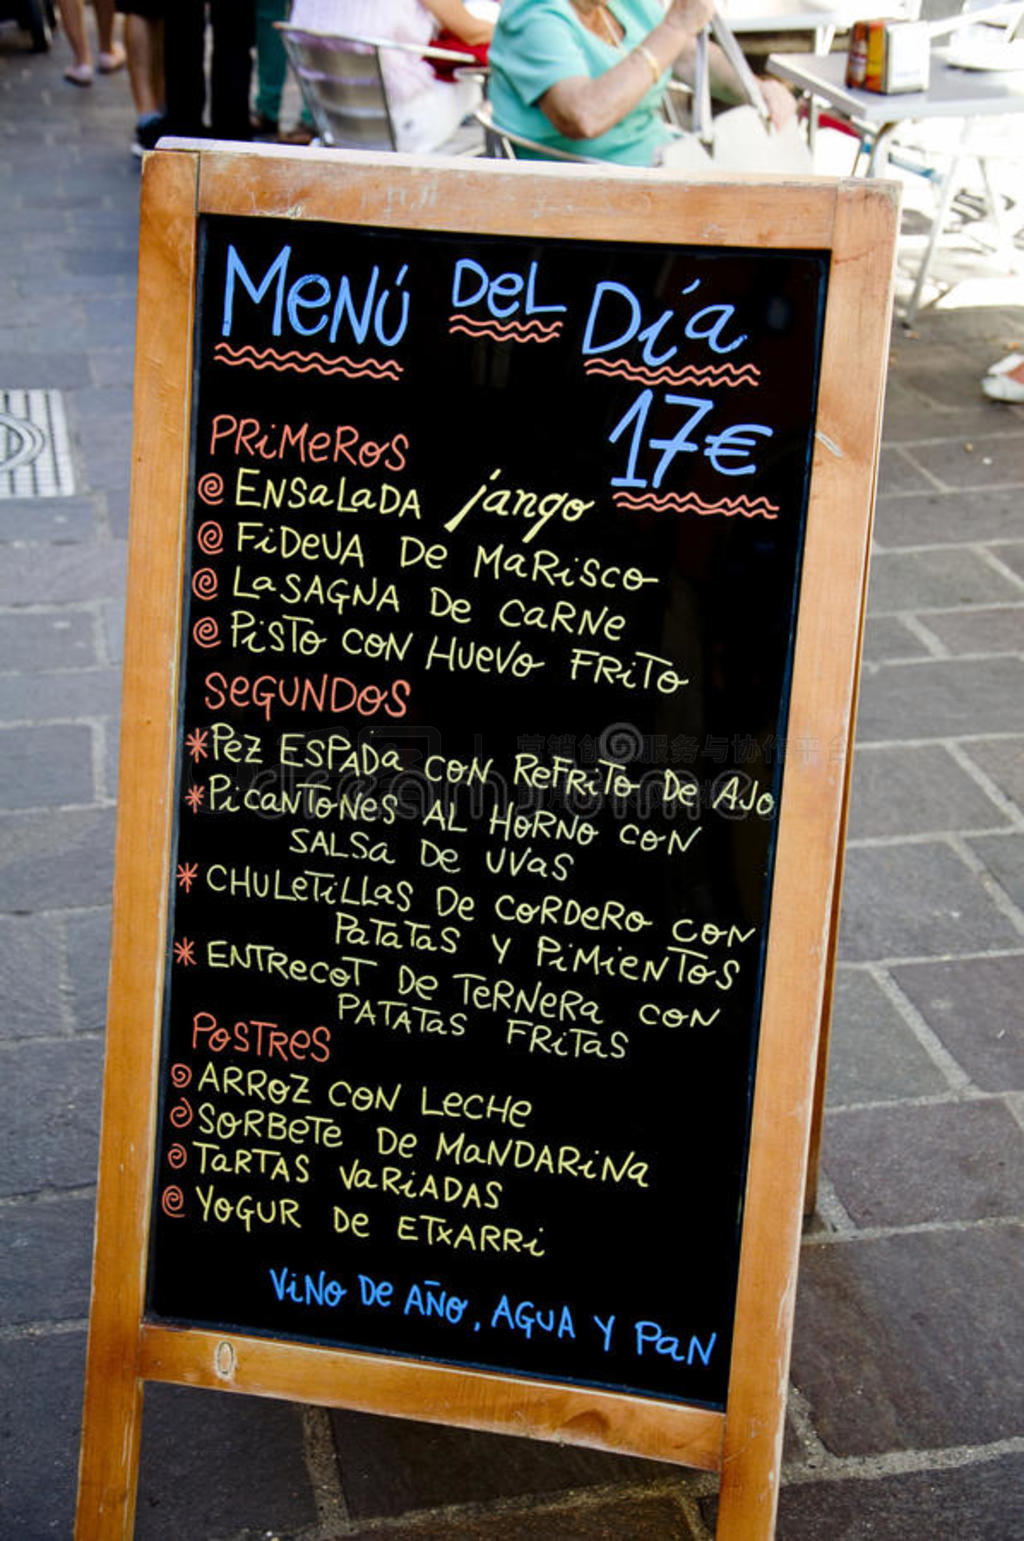 MENÚ DEL DÍA
17€
PRIMEROS
ENSALADA jango
FIDEUA DE MARISCO
LASAGNA DE CARNE
PISTO CON HUEVO FRITO
SEGUNDOS
PEZ ESPADA CON REFRITO DE AJO
PICANTONES AL HORNO CON
SALSA DE UVAS
CHULETILLAS DE CORDERO CON
PATATAS Y PIMIENTOS
ENTRECOT DE TERNERA CON
PATATAS FRITAS
POSTRES
ARROZ CON LECHE
SORBETE DE MANDARINA
TARTAS VARIADAS
YOGUR DE ETXARRI
VINO DE AÑO, AGUA Y PAN